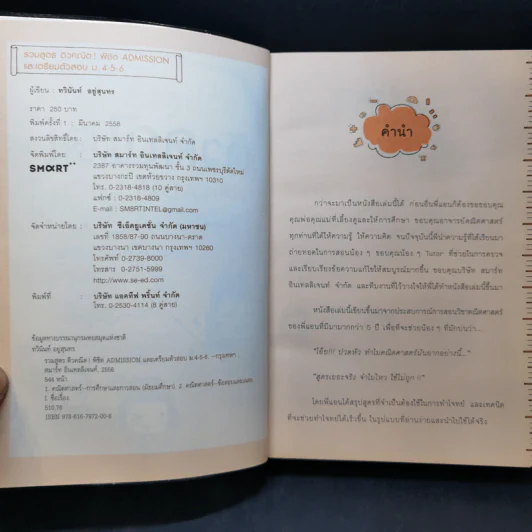 รวมสูตร ติวคณิต! พิชิต ADMISSION
และเตรียมตัวสอบ ม. 4-5-6
ผู้เขียน : ทวินันท์ อยู่สุนทร
ราคา 250 บาท
พิมพ์ครั้งที่ 1 : มีนาคม 2558
สงวนลิขสิทธิ์โดย : บริษัท สมาร์ท อินเทลลิเจนท์ จำกัด
จัดพิมพ์โดย : บริษัท สมาร์ท อินเทลลิเจนท์ จำกัด
SMART 2387 อาคารรวมทุนพัฒนา ชั้น 3 ถนนเพชรบุรีตัดใหม่
แขวงบางกะปิ เขตห้วยขวาง กรุงเทพฯ 10310
โทร. 0-2318-4818 (10 คู่สาย)
แฟกซ์ : 0-2318-4809
E-mail : SM8RTINTEL@gmail.com
จัดจำหน่ายโดย : บริษัท ซีเอ็ดยูเคชั่น จำกัด (มหาชน)
เลขที่ 1858/87-90 ถนนบางนา-ตราด
แขวงบางนา เขตบางนา กรุงเทพฯ 10260
โทรศัพท์ 0-2739-8000
โทรสาร 0-2751-5999
http://www.se-ed.com
พิมพ์ที่ : บริษัท แอคทีฟ พริ้นท์ จำกัด
โทร. 0-2530-4114 (8 คู่สาย)
ข้อมูลทางบรรณานุกรมหอสมุดแห่งชาติ
ทวินันท์ อยู่สุนทร
รวมสูตร ติวคณิต! พิชิต ADMISSION และเตรียมตัวสอบ ม.4-5-6. --กรุงเทพฯ :
สมาร์ท อินเทลลิเจนท์, 2558.
544 หน้า
1. คณิตศาสตร์--การศึกษาและการสอน (มัธยมศึกษา) 2. คณิตศาสตร์--ข้อสอบและเฉลย.
I. ชื่อเรื่อง
510.76
ISBN 978-616-7972-00-8
คำนำ
กว่าจะมาเป็นหนังสือเล่มนี้ได้ ก่อนอื่นพี่แอนก็ต้องขอขอบคุณ
คุณพ่อคุณแม่ที่เลี้ยงดูและให้การศึกษา ขอบคุณอาจารย์คณิตศาสตร์
ทุกท่านที่ได้ให้ความรู้ ให้ความคิด จนปัจจุบันนี้พี่นำความรู้ที่ได้เรียนมา
ถ่ายทอดในการสอนน้อง ๆ ขอบคุณน้อง ๆ Tutor ที่ช่วยในการตรวจ
และเรียบเรียงข้อความแก้ไขให้สมบูรณ์มากขึ้น ขอบคุณบริษัท สมาร์ท
อินเทลลิเจนท์ จำกัด และทีมงานที่ไว้วางใจให้พี่ได้ทำหนังสือเล่มนี้ขึ้นมา
หนังสือเล่มนี้เขียนขึ้นมาจากประสบการณ์การสอนวิชาคณิตศาสตร์
ของพี่แอนที่มีมามากกว่า ปี เพื่อที่จะช่วยน้อง ๆ ที่มักบ่นว่า...
"โอ๊ย!!! ปวดหัว ทำไมคณิตศาสตร์มันยากอย่างนี้..."
"สูตรเยอะจริง จำไม่ไหว ใช้ไม่ถูก !!"
โดยพี่แอนได้สรุปสูตรที่จำเป็นต้องใช้ในการทำโจทย์ และเทคนิค
ที่จะช่วยทำโจทย์ได้เร็วขึ้น ในรูปแบบที่อ่านง่ายและนำไปใช้ได้จริง